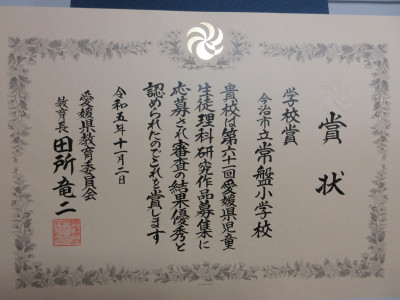 賞状
学校賞
今治市立常盤小学校
貴校は第六十一回愛媛県児童
生徒理科研究作品募集に
応募され審査の結果優秀と
認められたのでこれを賞します
令和五年十一月二日
愛媛県教育委員会
教育長 田所竜二